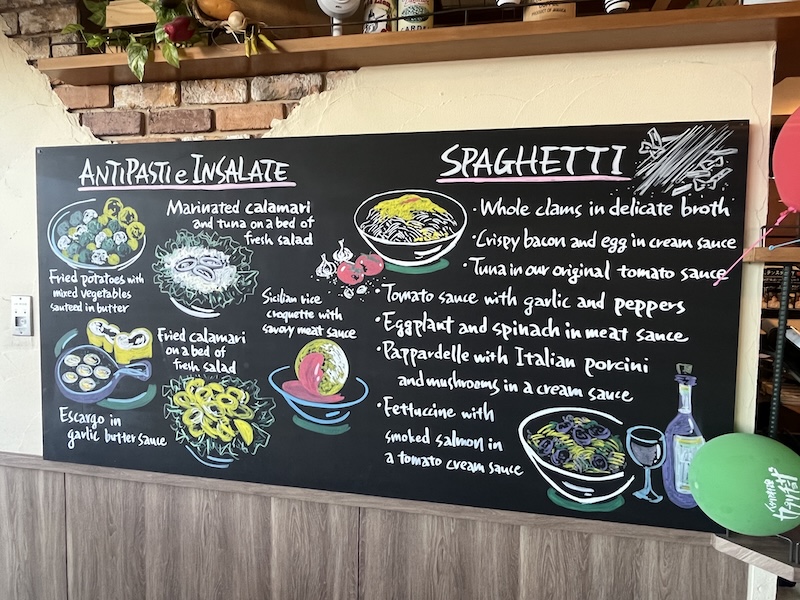 ANTIPASTI e INSALATE
Fried potatoes with
mixed vegetables
sauteed in butter
Marinated calamari
and tuna on a bed of
fresh salad
Escargo in
garlic butter sauce
Fried calamari
on a bed of
fresh salad
Sicilian rice
croquette with
savory meat sauce
SPAGHETTI
・Whole clams in delicate broth
・Crispy bacon and egg in cream sauce
・Tuna in our original tomato sauce
・Tomato sauce with garlic and peppers
・Eggplant and spinach in meat sauce
・Pappardelle with Italian porcini
and mushrooms in a cream sauce
・Fettuccine with
smoked salmon in
a tomato cream sauce